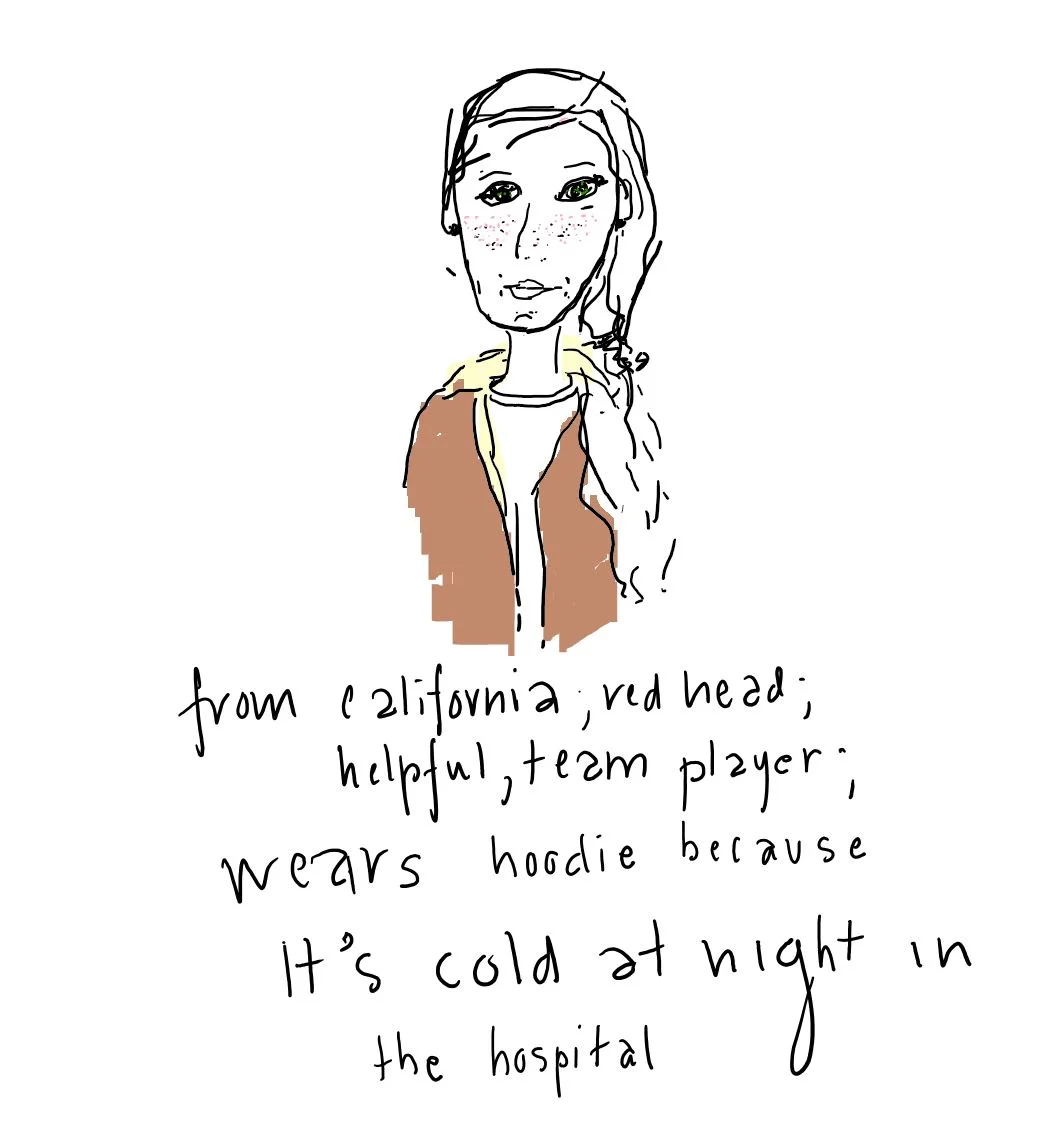 from california; red head;
helpful, team player;
wears hoodie because
It's cold at night in
the hospital